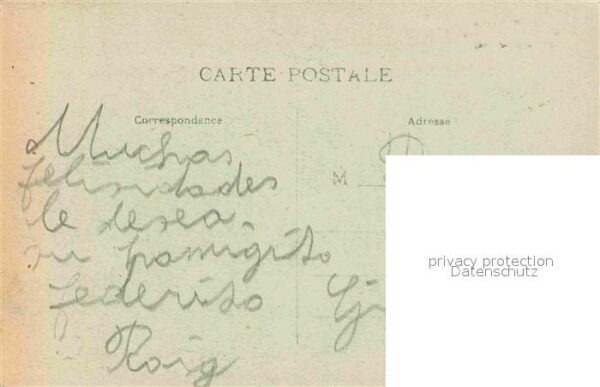 CARTE POSTALE
Correspondance
Adresse
Muchas
felisidades
le desea
su
federiso
Roig
M
privacy protection
Datenschutz